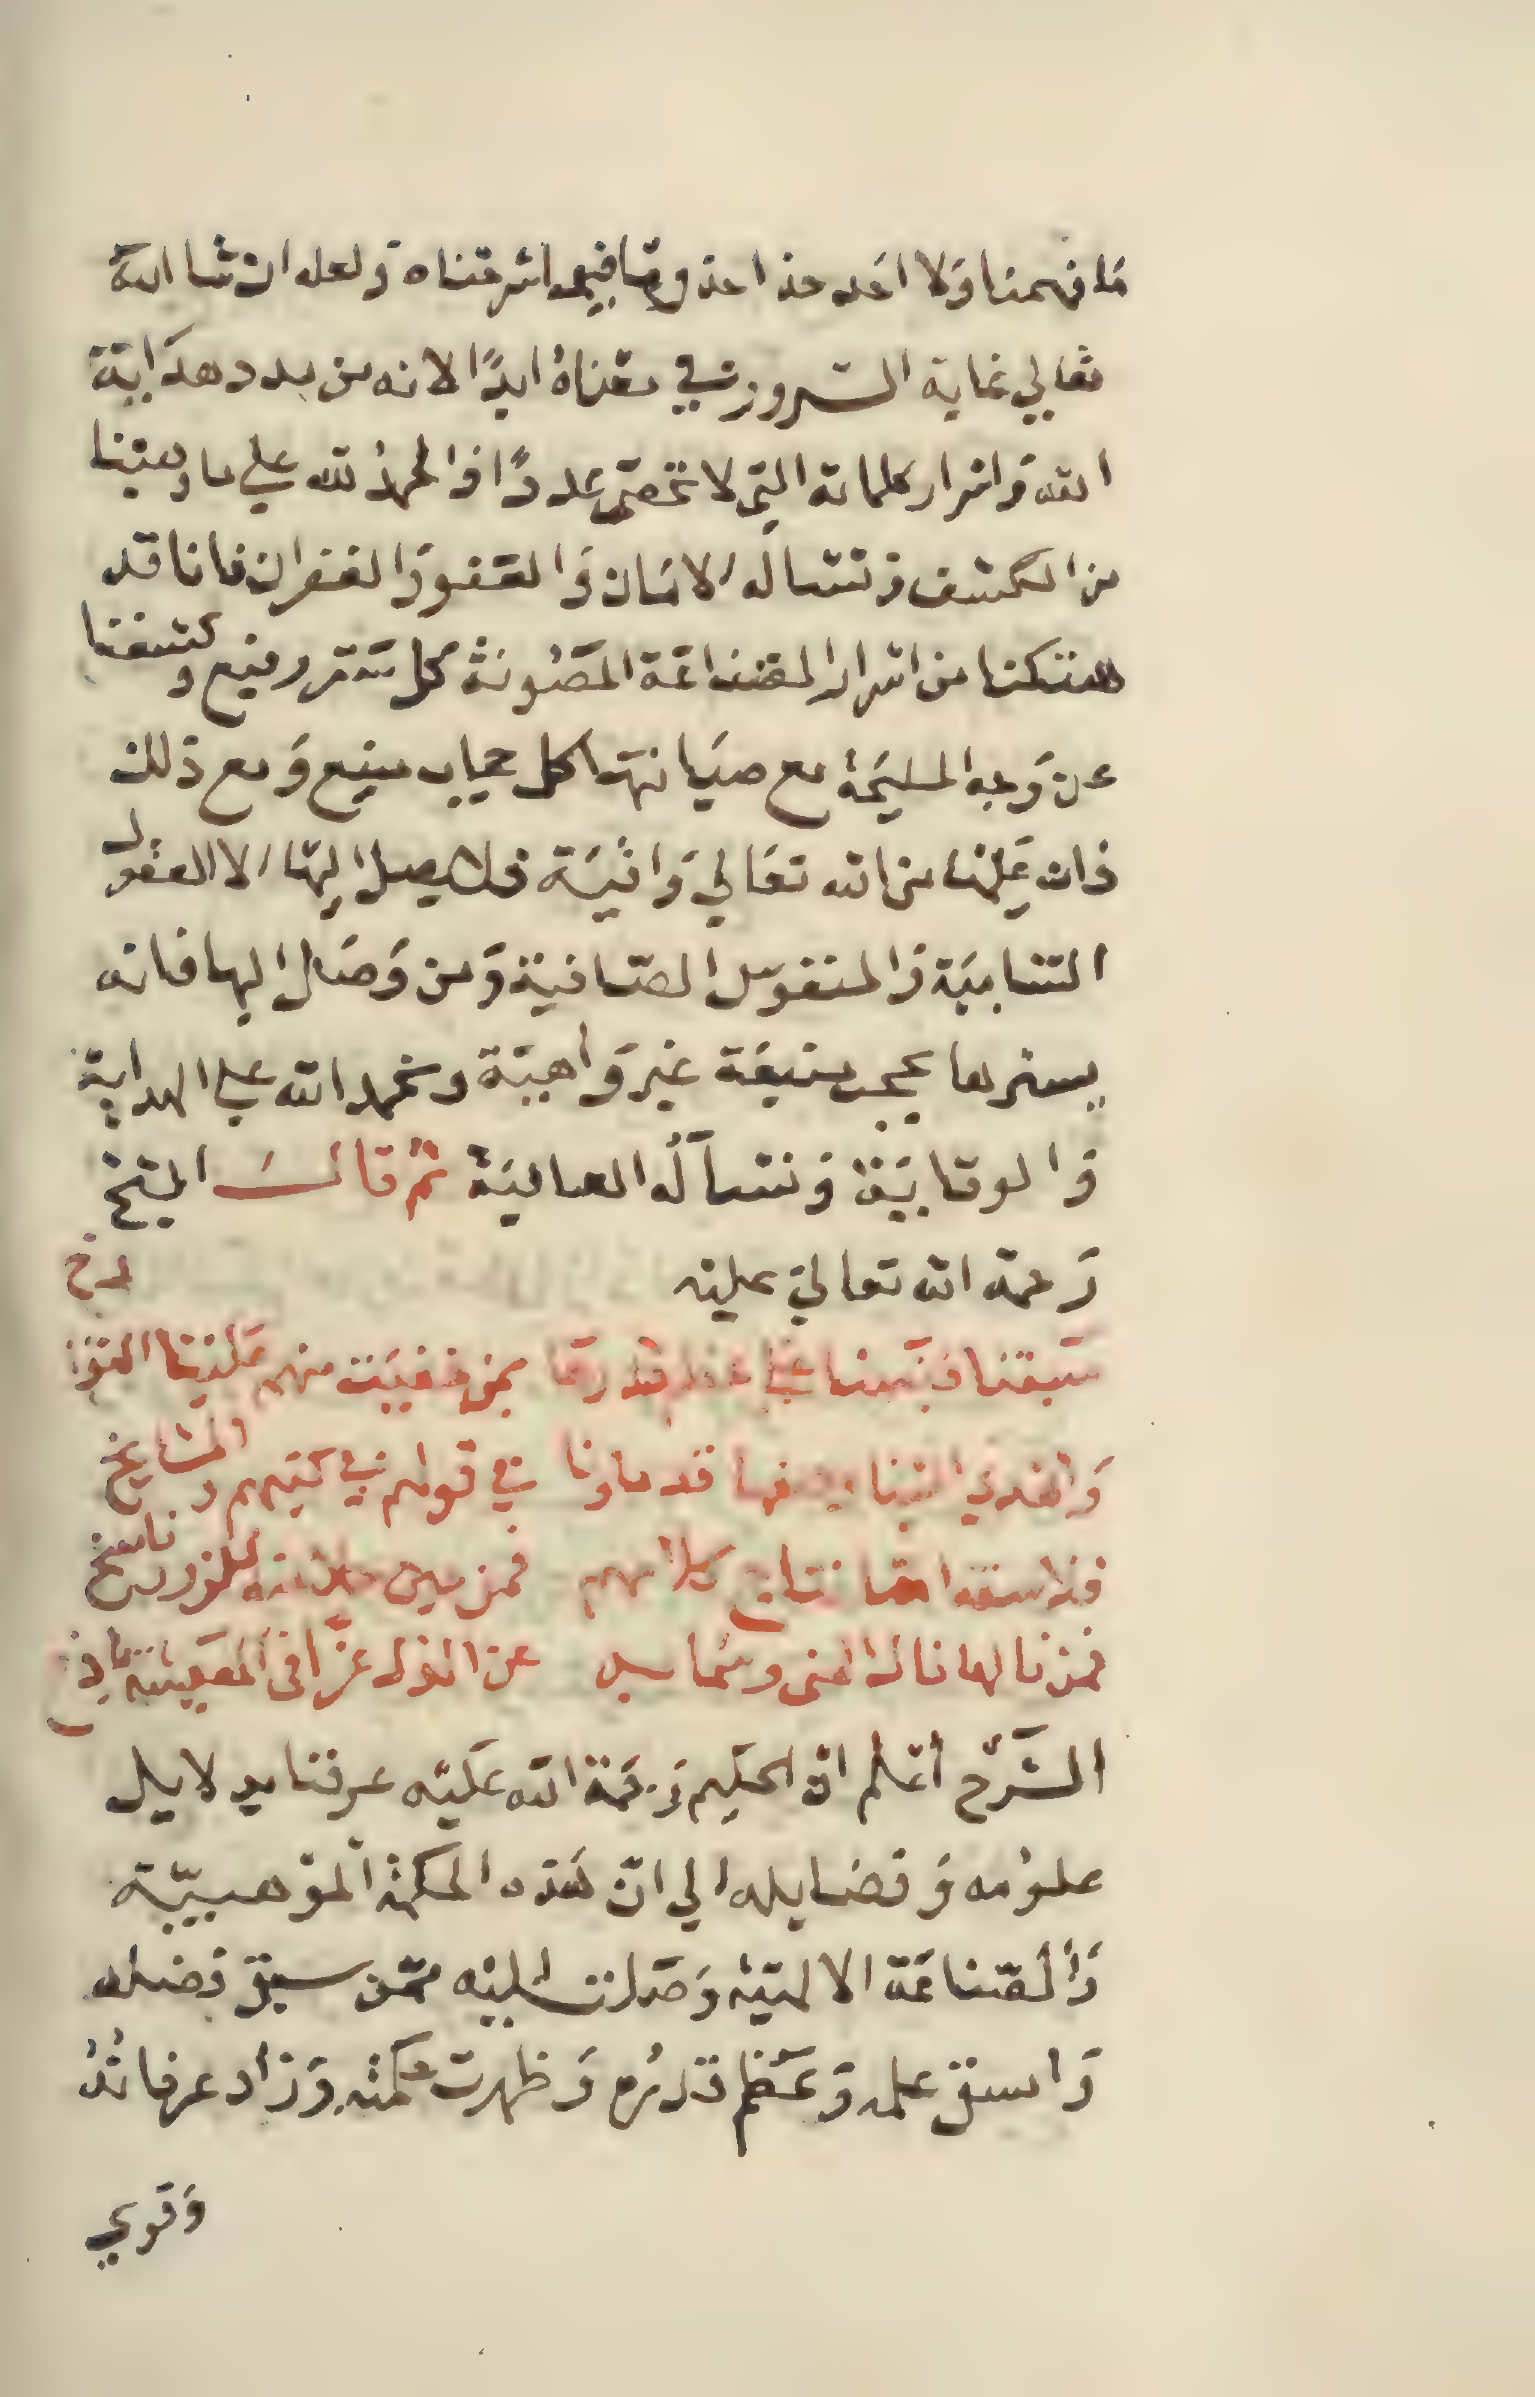 ما فهمنا ولا احد حذا حذونا فيما شرحناه ولعله ان شا الله
تعالي غاية الشروز في معناه ابدًا لانه من مدد هداية
الله واسرار كلماته التي لا تحصى عددًا فالحمد لله علي ما وهبنا
من الكشف ونساله الامان والعفو والغفران فانا قد
هتكنا من اسرار الصناعة المصونة كل ستر رفيع وكشفنا
عن وجه المليحة مع صيانتها كل حجاب منيع ومع ذلك
فان علينا من الله تعالي واقية فلا يصل اليها الا العقول
السامية والنفوس الصافية ومن وصل اليها فانه
يسترها بحجب منيعة غير واهية ونحمد الله علي الهداية
والوقاية ونسأله العافية ثم قال الشيخ
رحمة الله تعالي عليه
سبقنا فنبهنا علي عظم قدرها بمن
قد ماونا في قولهم في كتبهم والمشايخ
نتايج كلامهم فمن بين
فمن نالها نال المنى وسما به عن الذل عزا في المعيشة باذخ
الشرح أعلم ان الحكيم رحمة الله عليه عرفنا بدلايل
علومه وفضايله الي ان هذه الحكمة الموهبيّة
والصناعة الالهية وصلت اليه ممن سبق فضله
واسبق علمه وعظم قدره وظهرت حكمته وزاد عرفانه
وقوي